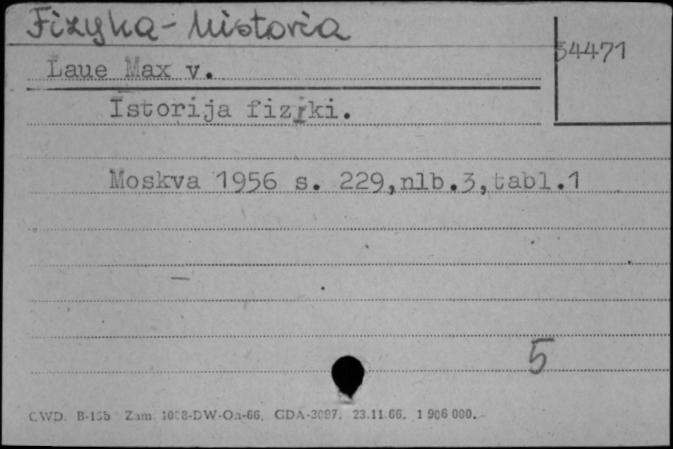 Fizyka - historia
54471
Laue Max v.
Istorija fiziki.
Moskva 1956 s. 229,nlb.3,tabl.1
5
CWD. B-155 Zam. 1008-DW-Oa-66. GDA-3097. 23.11.66. 1 906 000.